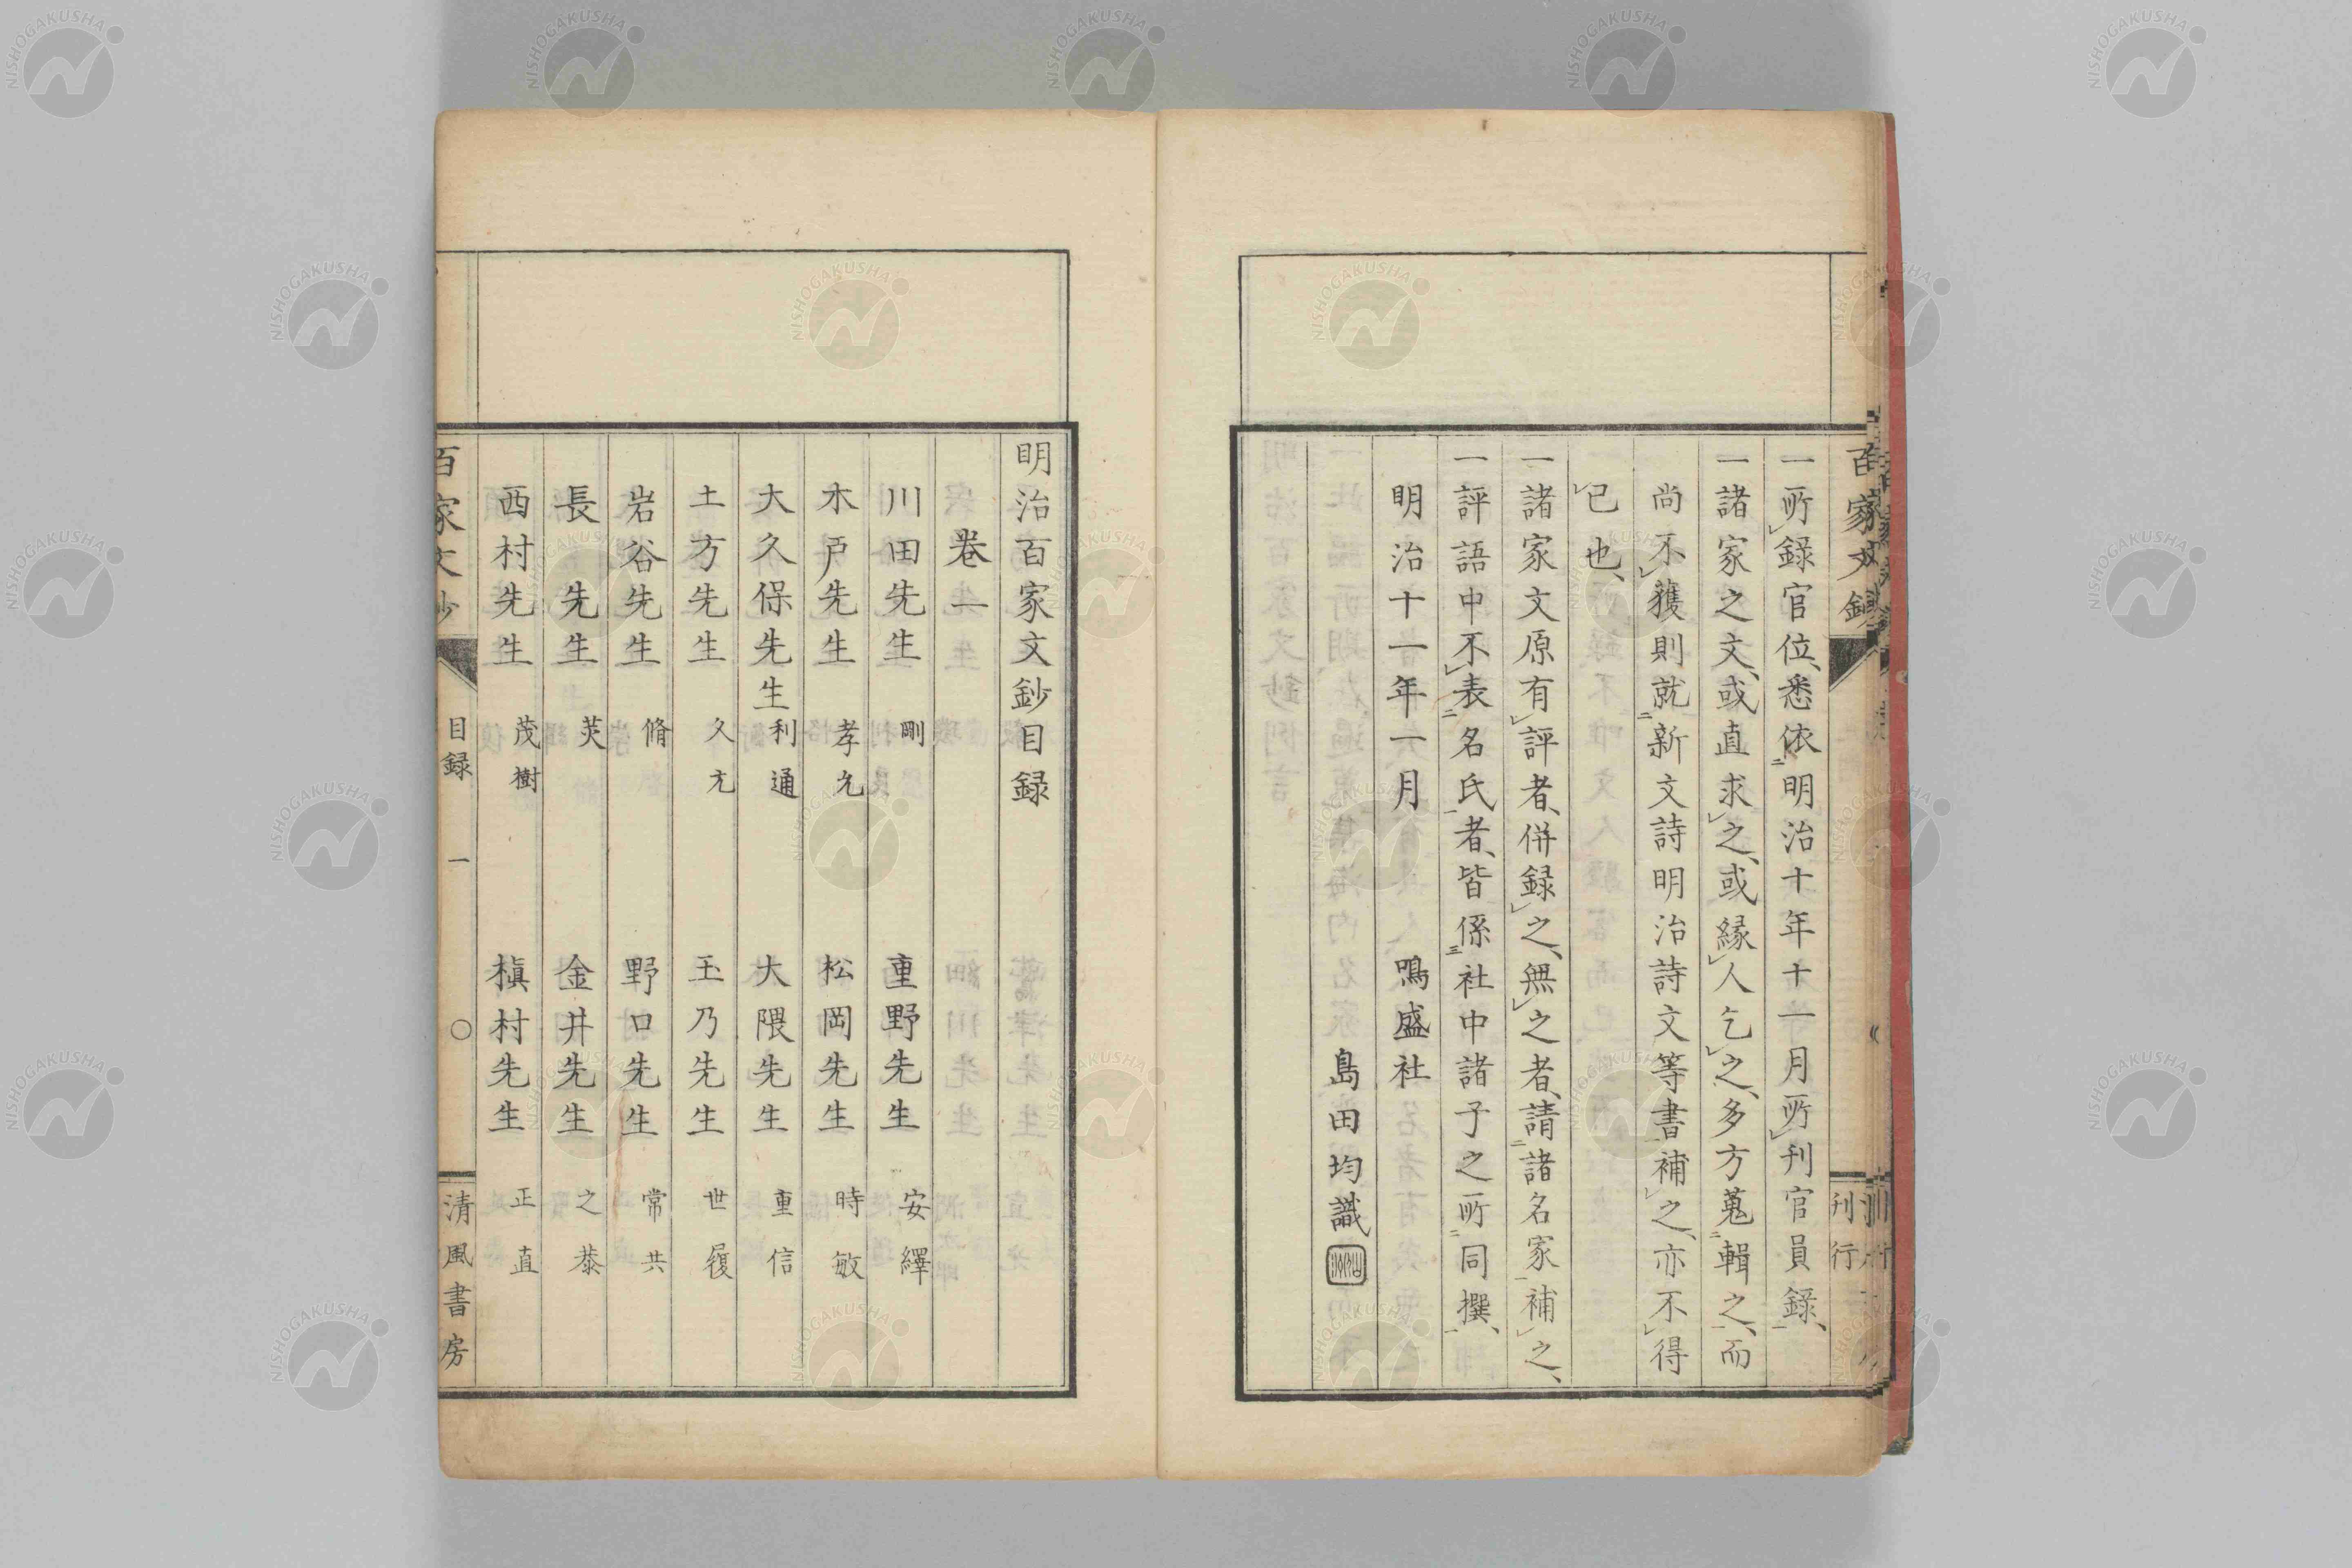 一所録官位、悉依明治十年十一月所刊官員錄、
一諸家之文、或直求之、或緣人乞之、多方蒐輯之、而
尚不獲則就新文詩明治詩文等書補之、亦不得
已也、
一諸家文原有評者、併録之、無之者、請諸名家補之、
一評語中不表名氏者、皆係社中諸子之所同撰、
明治十一年一月　鳴盛社
島田均識
明治百家文鈔目録
卷一
川田先生　剛　重野先生　安繹
木戸先生　孝允　松岡先生　時敏
大久保先生　利通　大隈先生　重信
土方先生　久元　玉乃先生　世履
岩谷先生　脩　野口先生　常共
長　先生　炗　金井先生　之恭
西村先生　茂樹　槇村先生　正直
百家文鈔　目録　一　〇　清風書房
NISHOGAKUSHA